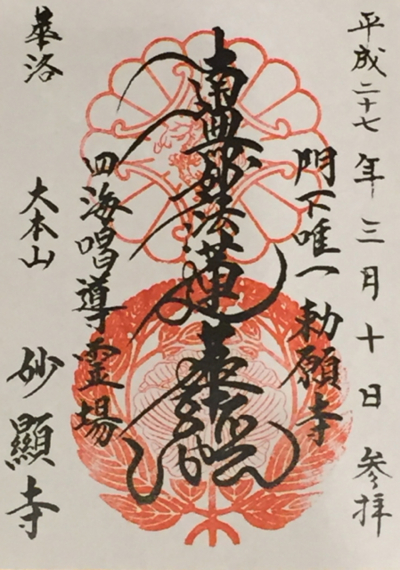 平成二十七年三月十日 参拝
門下唯一勅願寺
南無妙法蓮華経
四海唱導霊場
華洛 大本山 妙顯寺